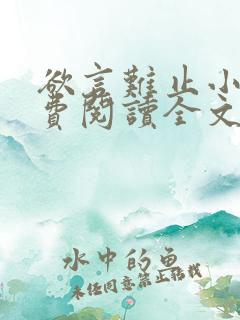 欲言難止小
費閱讀全文
水中的魚
未経同意禁止転載